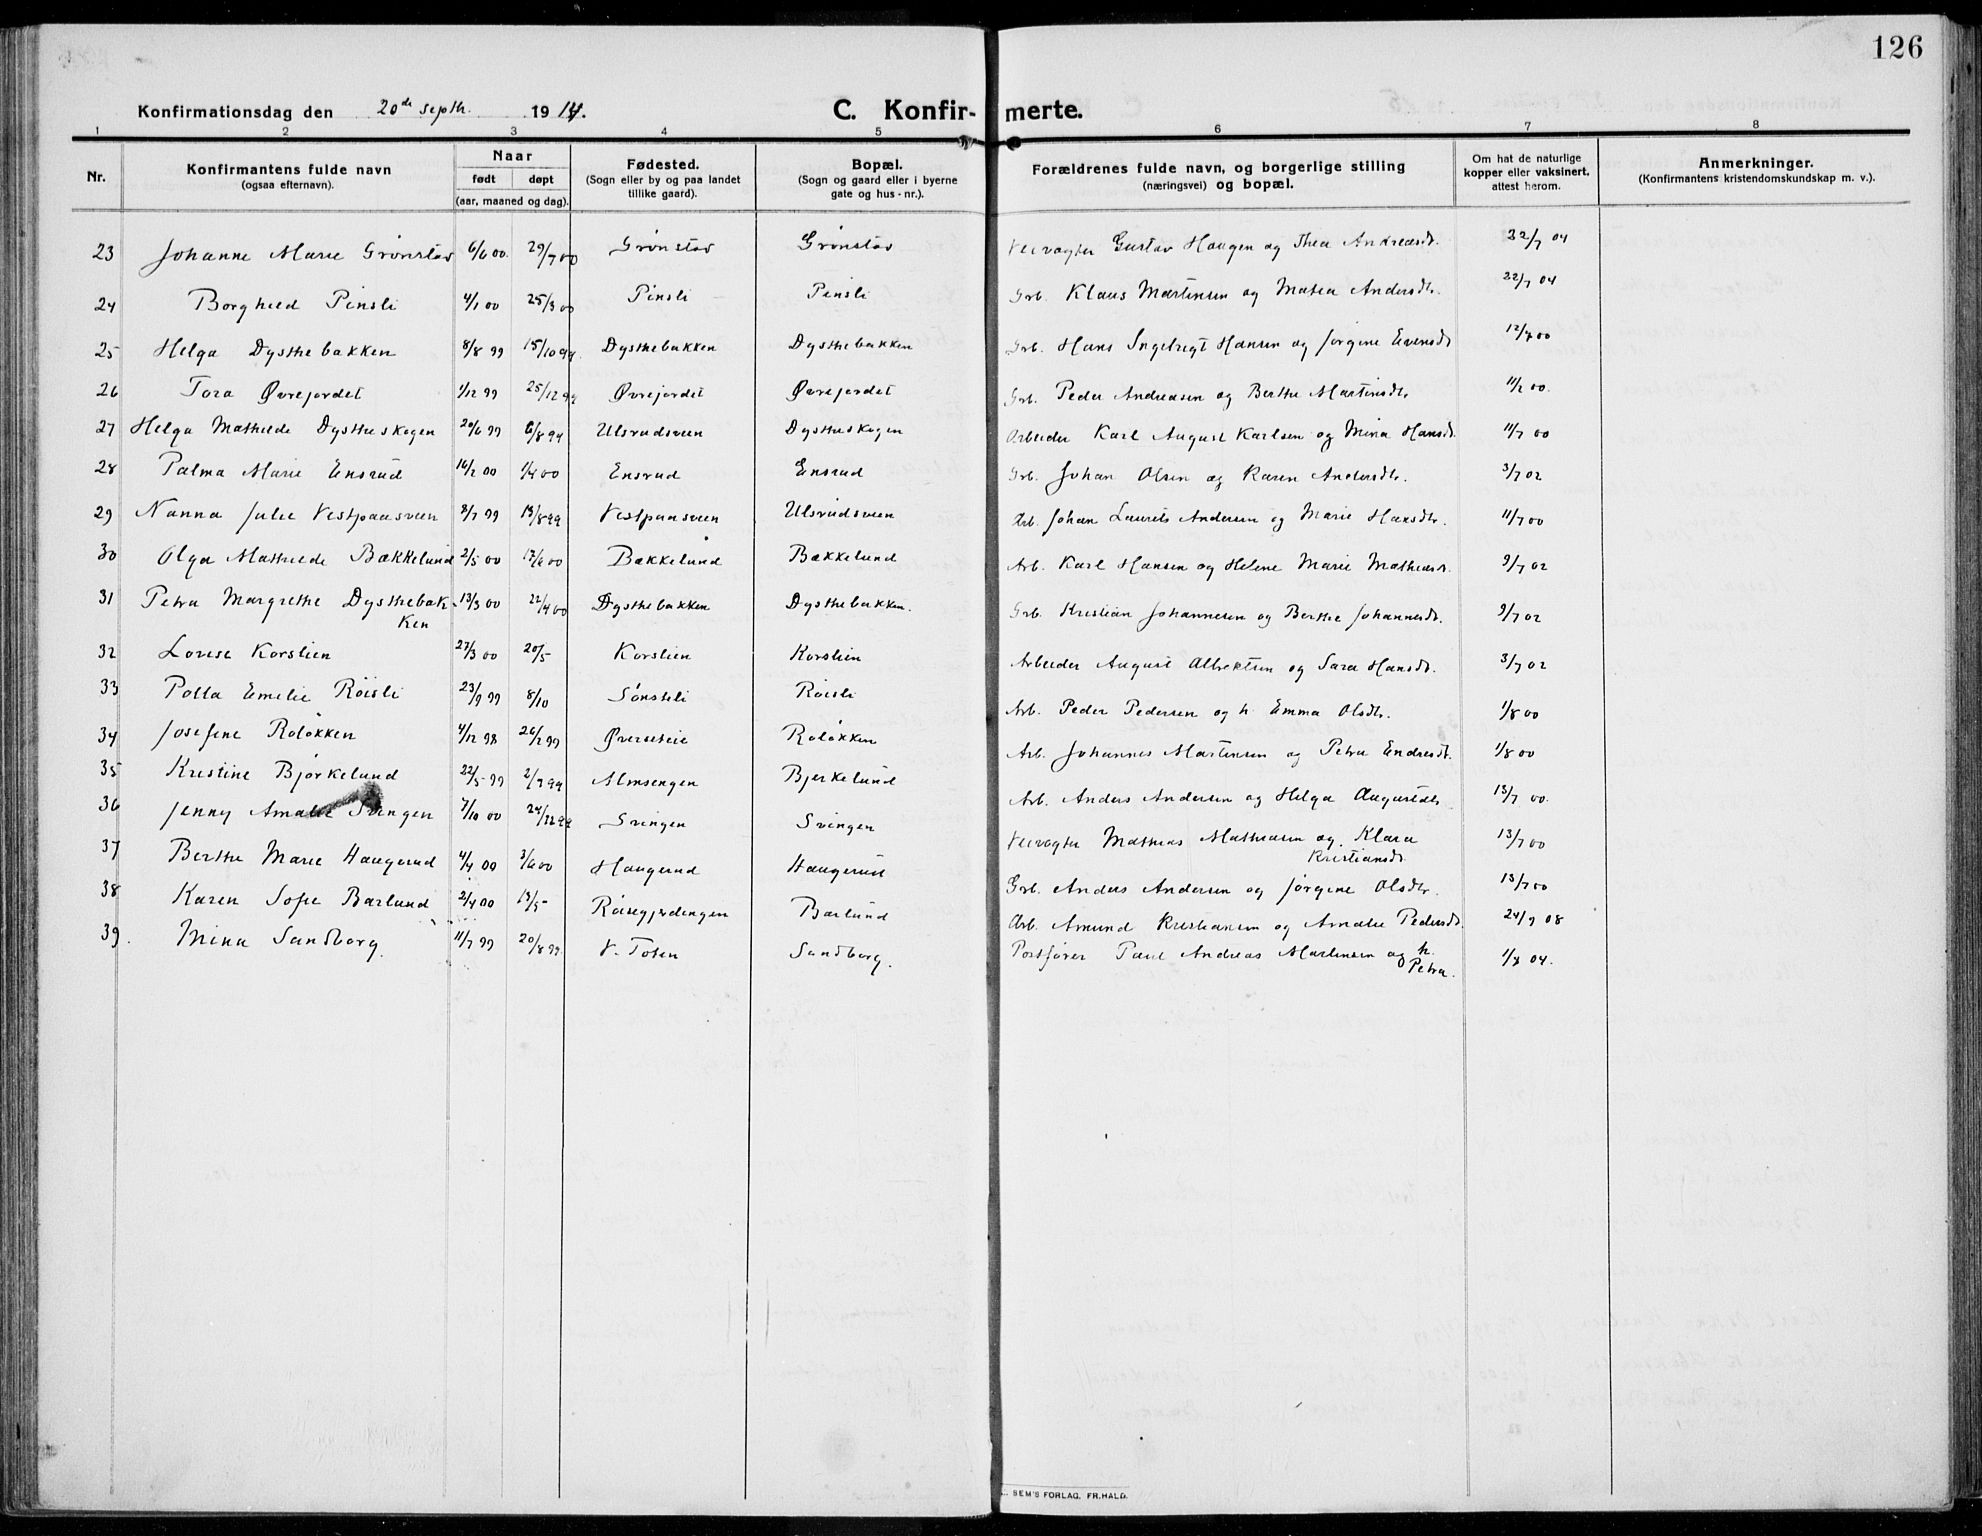 126
Konfirmationsdag den 20de septb. 1914. C. Konfir- merte.
1 2 3 4 5 6 7 8
Nr. Konfirmantens fulde navn (ogsaa efternavn). Naar født døpt (aar, maaned og dag). Fødested. (Sogn eller by og paa landet tillike gaard). Bopæl. (Sogn og gaard eller i byerne gate og hus-nr.). Forældrenes fulde navn, og borgerlige stilling (næringsvei) og bopæl. Om hat de naturlige kopper eller vaksinert, attest herom. Anmerkninger. (Konfirmantens kristendomskundskap m. v.).
23 Johanne Marie Grønstav 6/6 00. 29/7 00 Grønstav Grønstav Veivogter Gustav Haugen og Thea Andreasdt. 22/7 04
24 Borghild Pinsli 4/1 00 25/3 00 Pinsli Pinsli Grb. Klaus Martinsen og Matea Andersdt. 22/7 04
25 Helga Dysthebakken 8/8 99 15/10 99. Dysthebakken Dysthebakken Grb. Hans Ingebrigt Hansen og Jørgine Evensdt 12/7 00
26 Tora Øvrejordet 1/12 99 25/12 99 Øvrejordet Øvrejordet Grb. Peder Andreasen og Berthe Martinsdt. 11/2 00.
27 Helga Mathilde Dystheskogen 20/6 99 6/8 99 Ulsrudsveen Dystheskogen Arbeider Karl August Karlsen og Mina Hansdt. 11/7 00
28 Palma Marie Ensrud 16/2 00 1/4 00 Ensrud Ensrud Grb. Johan Olsen og Karen Andersdt. 3/7 02
29 Nanna Julie Vestpaasveen 8/7 99 13/8 99 Vestpaasveen Ulsrudsveen Arb. Johan Laurits Andersen og Marie Hansdt. 11/7 00
30 Olga Mathilde Bækkelund 2/5 00 17/6 00 Bækkelund Bækkelund Arb. Karl Hansen og Helene Marie Mathiasdt. 9/7 02
31 Petra Margrethe Dysthebak- 13/3 00 22/4 00 Dysthebakken Dysthebakken. Grb. Kristian Johannesen og Berthe Johannesdt. 9/7 02
ken
32 Lovise Korslien 27/3 00 20/5 Korslien Korslien Arbeider August Albrektsen og Sara Hansdt. 3/7 02
33 Polla Emilie Röisli 23/9 99 8/10 Sønsteli Röisli Arb. Peder Pedersen og h. Emma Olsdt. 1/8 00
34 Josefine Roløkken 4/12 98 26/2 99 Øverseteie Roløkken Arb. Johannes Martinsen og Petra Endresdt. 1/8 00
35 Kristine Bjørkelund 22/5 99 2/7 99 Almsengen Bjerkelund Arb. Anders Andersen og Helga Augustdt. 13/7 00.
36 Jenny Amalie Svingen 7/10 00 24/12 99 Svingen Svingen Veivogter Mathias Mathiasen og Klara 13/7 00
Kristiansdt.
37 Berthe Marie Haugerud 4/4 00 3/6 00 Haugerud Haugerud Grb. Anders Andersen og Jørgine Olsdt. 13/7 00
38 Karen Sofie Barlund 2/4 00 13/5 Röisegjerdengen Barlund Arb. Amund Kristiansen og Amalie Pedersdt. 24/9 08
39. Mina Sandberg. 11/7 99 20/8 99. V. Toten Sandberg. Postfører Paul Andreas Martinsen og h. 1/8 04.
Petra.
SEM'S FORLAG, FR.HALD.